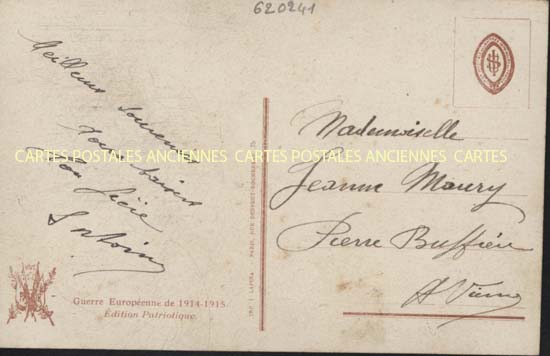 620241
Meilleur souvenir
Ton frère
Antoine
CARTES POSTALES ANCIENNES CARTES POSTALES ANCIENNES CARTES
Mademoiselle
Jeanne Maury
Pierre Buffière
Hte Vienne
Guerre Européenne de 1914-1915.
Édition Patriotique.